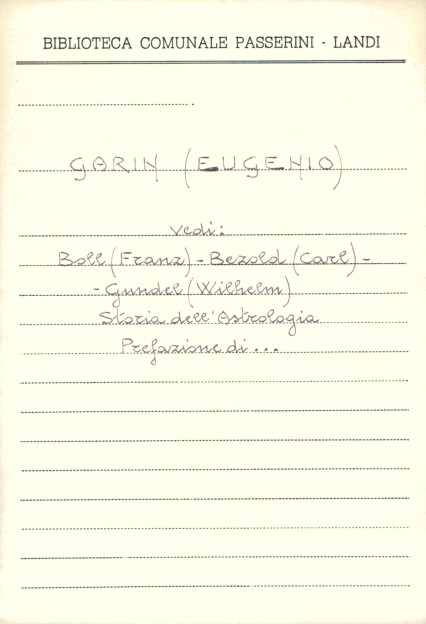 BIBLIOTECA COMUNALE PASSERINI - LANDI
GARIN (EUGENIO)
vedi:
Boll (Franz) - Bezold (Carl) -
- Gundel (Wilhelm)
Storia dell'Astrologia
Prefazione di ...